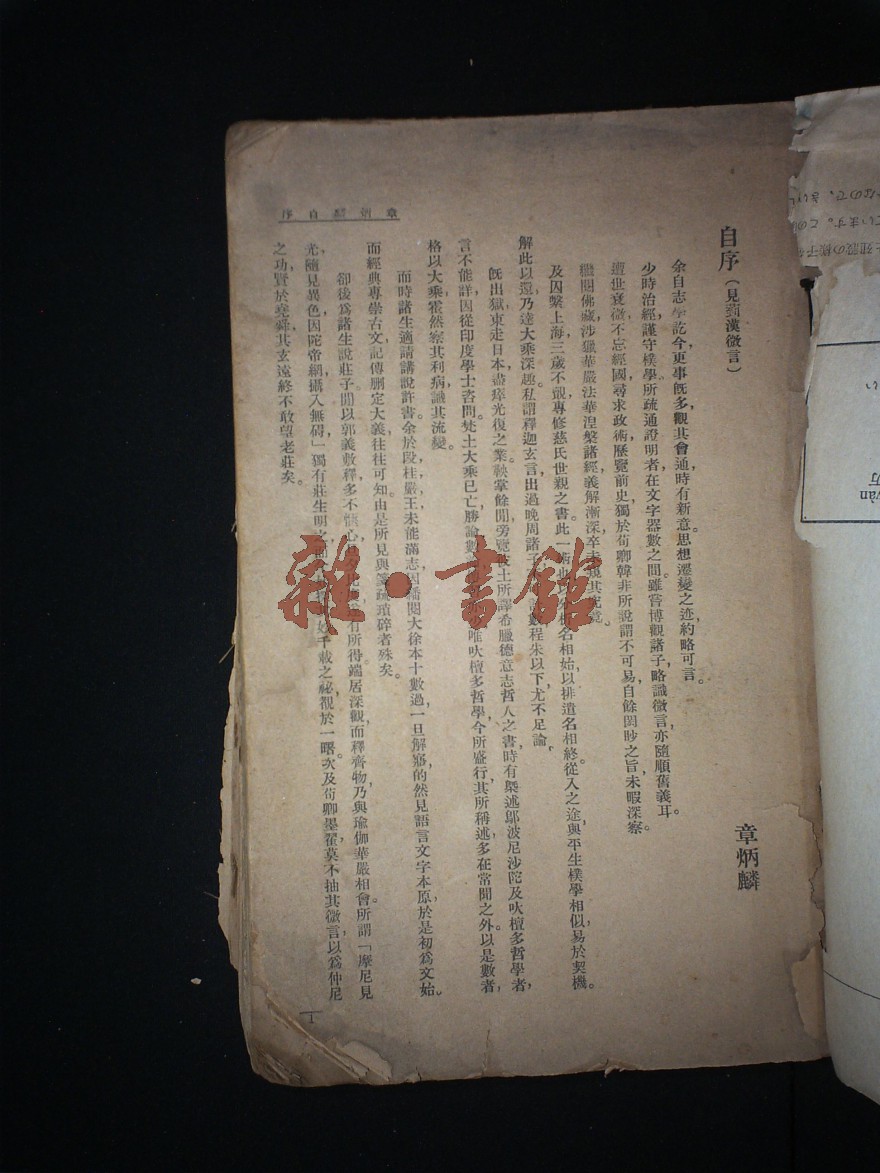 自序（見菿漢微言）
章炳麟
余自志學訖今更事旣多觀其會通時有新意思想遷變之迹約略可言。
少時治經謹守樸學所疏通證明者在文字器數之間雖嘗博觀諸子略識微言亦隨順舊義耳。
遭世衰微不忘經國尋求政術歷覽前史獨於荀卿韓非所說謂不可易自餘閎眇之旨未暇深察。
繼閱佛藏涉獵華嚴法華涅槃諸經義解漸深卒未窺其究竟。
及囚繫上海三歲不覿專修慈氏世親之書此一術也以分析名相始以排遣名相終從入之途與平生樸學相似易於契機。
解此以還乃達大乘深趣私謂釋迦玄言出過晚周諸子不可計數程朱以下尤不足論。
旣出獄東走日本盡瘁光復之業鞅掌餘閒旁覽彼土所譯希臘德意志哲人之書時有槩述鄔波尼沙陀及吠檀多哲學者，
言不能詳因從印度學士咨問梵土大乘已亡勝論數論唯吠檀多哲學今所盛行其所稱述多在常聞之外。以是數者，
格以大乘霍然察其利病識其流變。
而時諸生適請講說許書余於段桂嚴王未能滿志因繙閱大徐本十數過一旦解寤的然見語言文字本原於是初爲文始。
而經典專崇古文記傳刪定大義往往可知由是所見與箋疏瑣碎者殊矣。
卻後爲諸生說莊子間以郭義敷釋多不愜心有所得端居深觀而釋齊物乃與瑜伽華嚴相會所謂「摩尼見
光隨見異色因陀帝網攝入無礙」獨有莊生明之妙千載之祕覩於一曙次及荀卿墨翟莫不抽其微言以爲仲尼
之功賢於堯舜其玄遠終不敢望老莊矣。
章炳麟自序
1
雜·書館